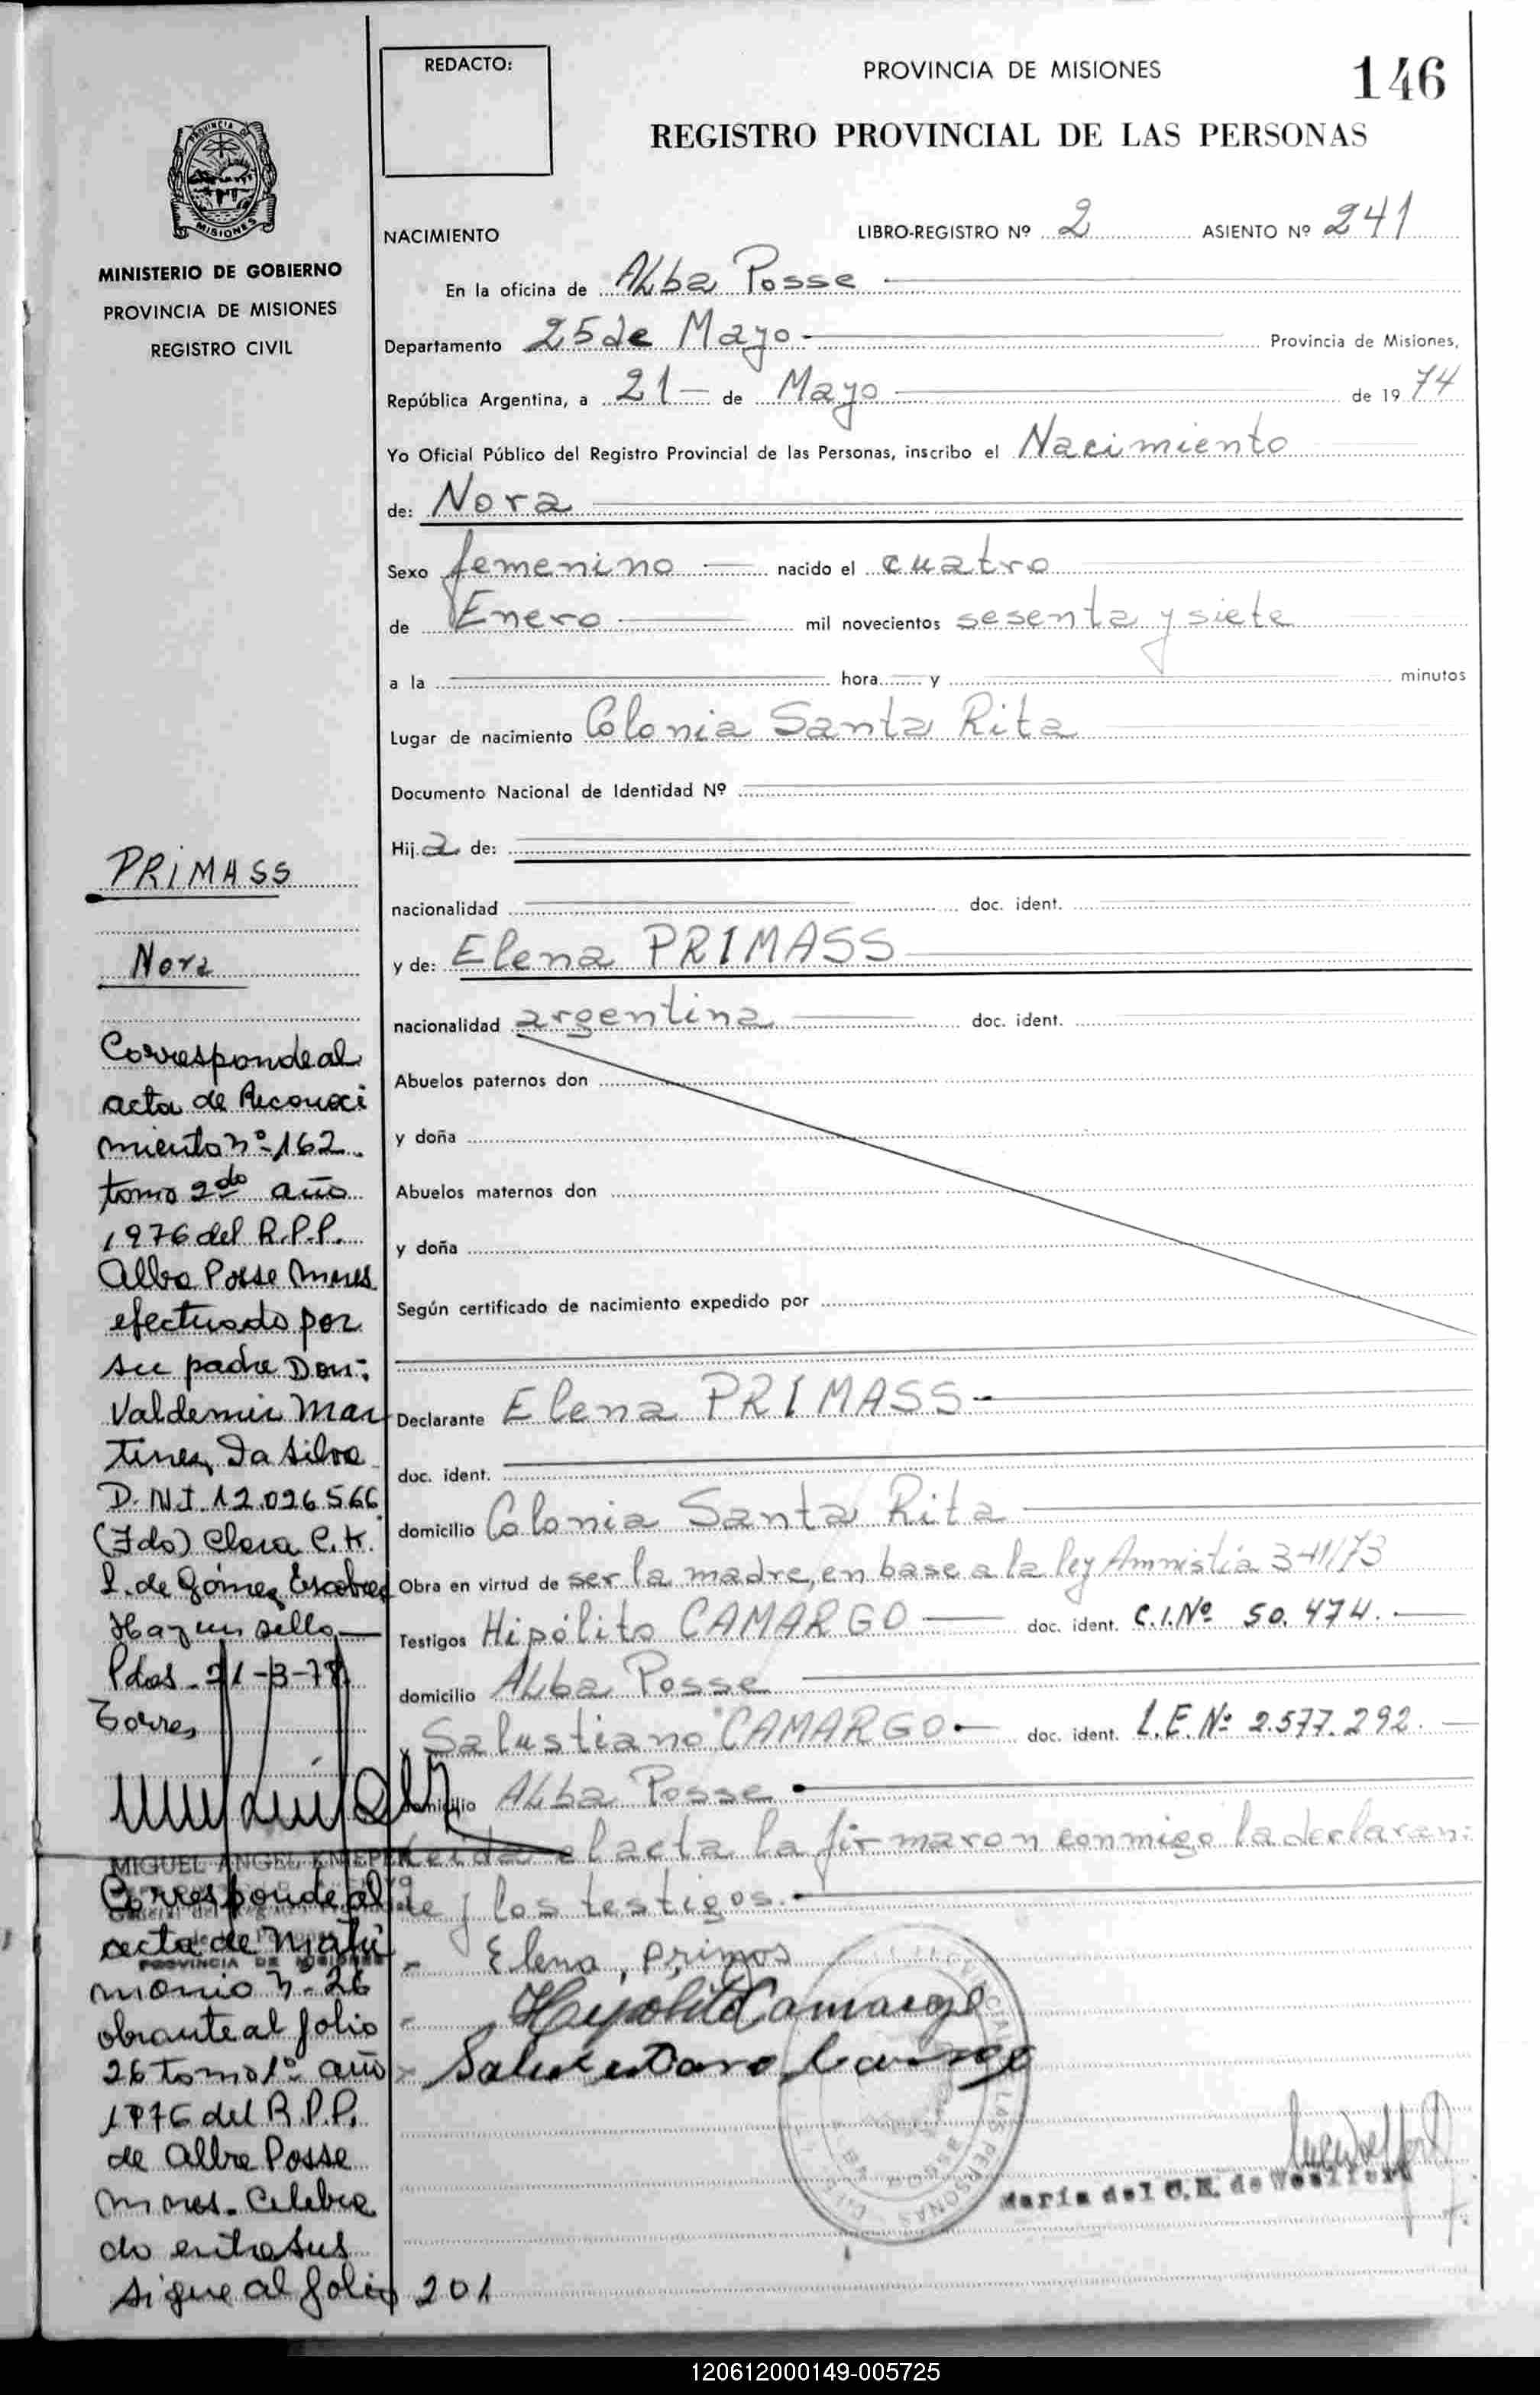 REDACTO:
PROVINCIA DE MISIONES
146
REGISTRO PROVINCIAL DE LAS PERSONAS
PROVINCIA DE
MISIONES
MINISTERIO DE GOBIERNO
PROVINCIA DE MISIONES
REGISTRO CIVIL
NACIMIENTO
LIBRO-REGISTRO Nº 2 ASIENTO Nº 241
En la oficina de Alba Posse
Departamento 25 de Mayo Provincia de Misiones,
República Argentina, a 21 de Mayo de 1974
Yo Oficial Público del Registro Provincial de las Personas, inscribo el Nacimiento
de: Nora
Sexo femenino nacido el cuatro
de Enero mil novecientos sesenta y siete
a la hora y minutos
Lugar de nacimiento Colonia Santa Rita
Documento Nacional de Identidad Nº
Hija de:
nacionalidad doc. ident.
y de: Elena PRIMASS
nacionalidad argentina doc. ident.
Abuelos paternos don
y doña
Abuelos maternos don
y doña
Según certificado de nacimiento expedido por
Declarante Elena PRIMASS
doc. ident.
domicilio Colonia Santa Rita
Obra en virtud de ser la madre, en base a la ley Amnistía 341/73
Testigos Hipólito CAMARGO doc. ident. C.I.Nº 50.474.
domicilio Alba Posse
y Salustiano CAMARGO doc. ident. L.E.Nº 2.577.292.
domicilio Alba Posse
Leida el acta la firmaron conmigo la declaran:
te y los testigos.
Elena, primos
Hipólito Camargo
María del C. E. de
PRIMASS
Nora
Corresponde al
acta de Reconoci
miento nº 162
tomo 2do año
1976 del R.P.P.
Alba Posse Mnes
efectuado por
su padre Don:
Valdemir Mar
tinez Da Silva
D.N.I. 12.026.566
(Fdo) Clara C. K.
L. de Gómez Escobar
Hay un sello
Pdas. 21-3-78
Torres
MIGUEL ANGEL KNIEPER
PROVINCIA DE MISIONES
Corresponde al
acta de Matri
monio n. 26
obrante al folio
26 tomo 1º año
1976 del R.P.P.
de Alba Posse
Mnes. Celebra
do entre sus
sigue al folio 201
120612000149-005725